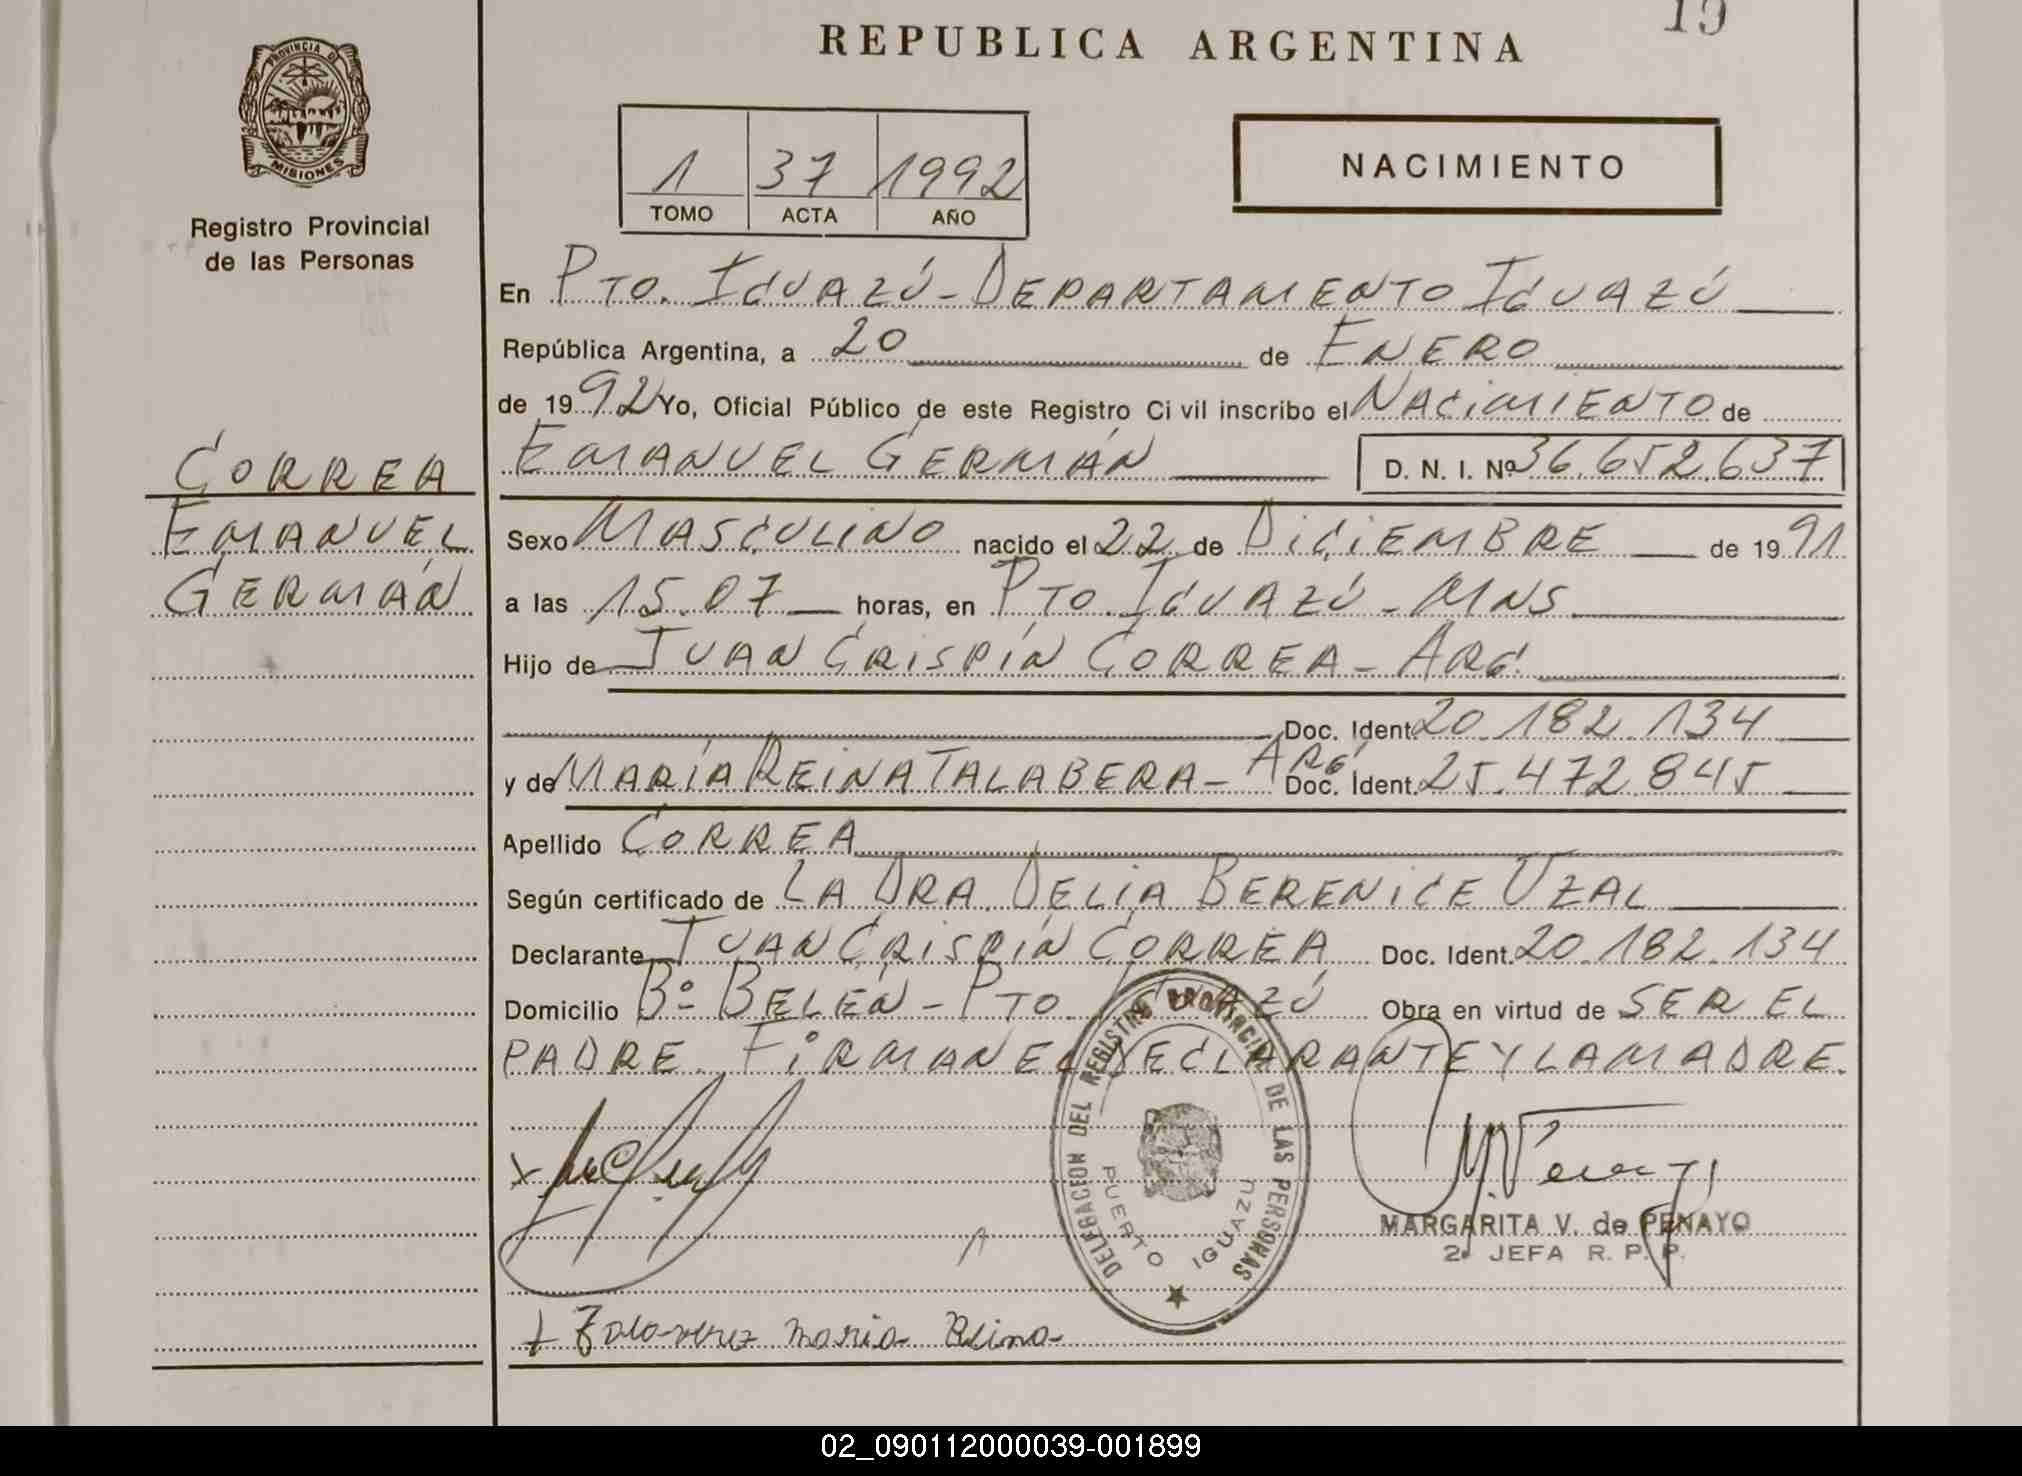 19
REPUBLICA ARGENTINA
PROVINCIA DE
MISIONES
Registro Provincial
de las Personas
1 37 1992
TOMO ACTA AÑO
NACIMIENTO
En PTO. IGUAZÚ - DEPARTAMENTO IGUAZÚ
República Argentina, a 20 de ENERO
de 1992 Yo, Oficial Público de este Registro Civil inscribo el NACIMIENTO de
EMANUEL GERMÁN D. N. I. Nº 36.652.637
CORREA
EMANUEL
GERMÁN
Sexo MASCULINO nacido el 22 de DICIEMBRE de 1991
a las 15.07 horas, en PTO. IGUAZÚ - MNS
Hijo de JUAN CRISPÍN CORREA - ARG.
Doc. Ident. 20.182.134
y de MARÍA REINA TALABERA - ARG. Doc. Ident. 25.472.845
Apellido CORREA
Según certificado de LA DRA. DELIA BERENICE UZAL
Declarante JUAN CRISPÍN CORREA Doc. Ident. 20.182.134
Domicilio Bº BELÉN - PTO. IGUAZÚ Obra en virtud de SER EL
PADRE. FIRMAN EL DECLARANTE Y LA MADRE.
DELEGACION DEL REGISTRO PROVINCIAL DE LAS PERSONAS
PUERTO IGUAZU
MARGARITA V. de PENAYO
2ª JEFA R. P. P.
maria Reina
02_090112000039-001899